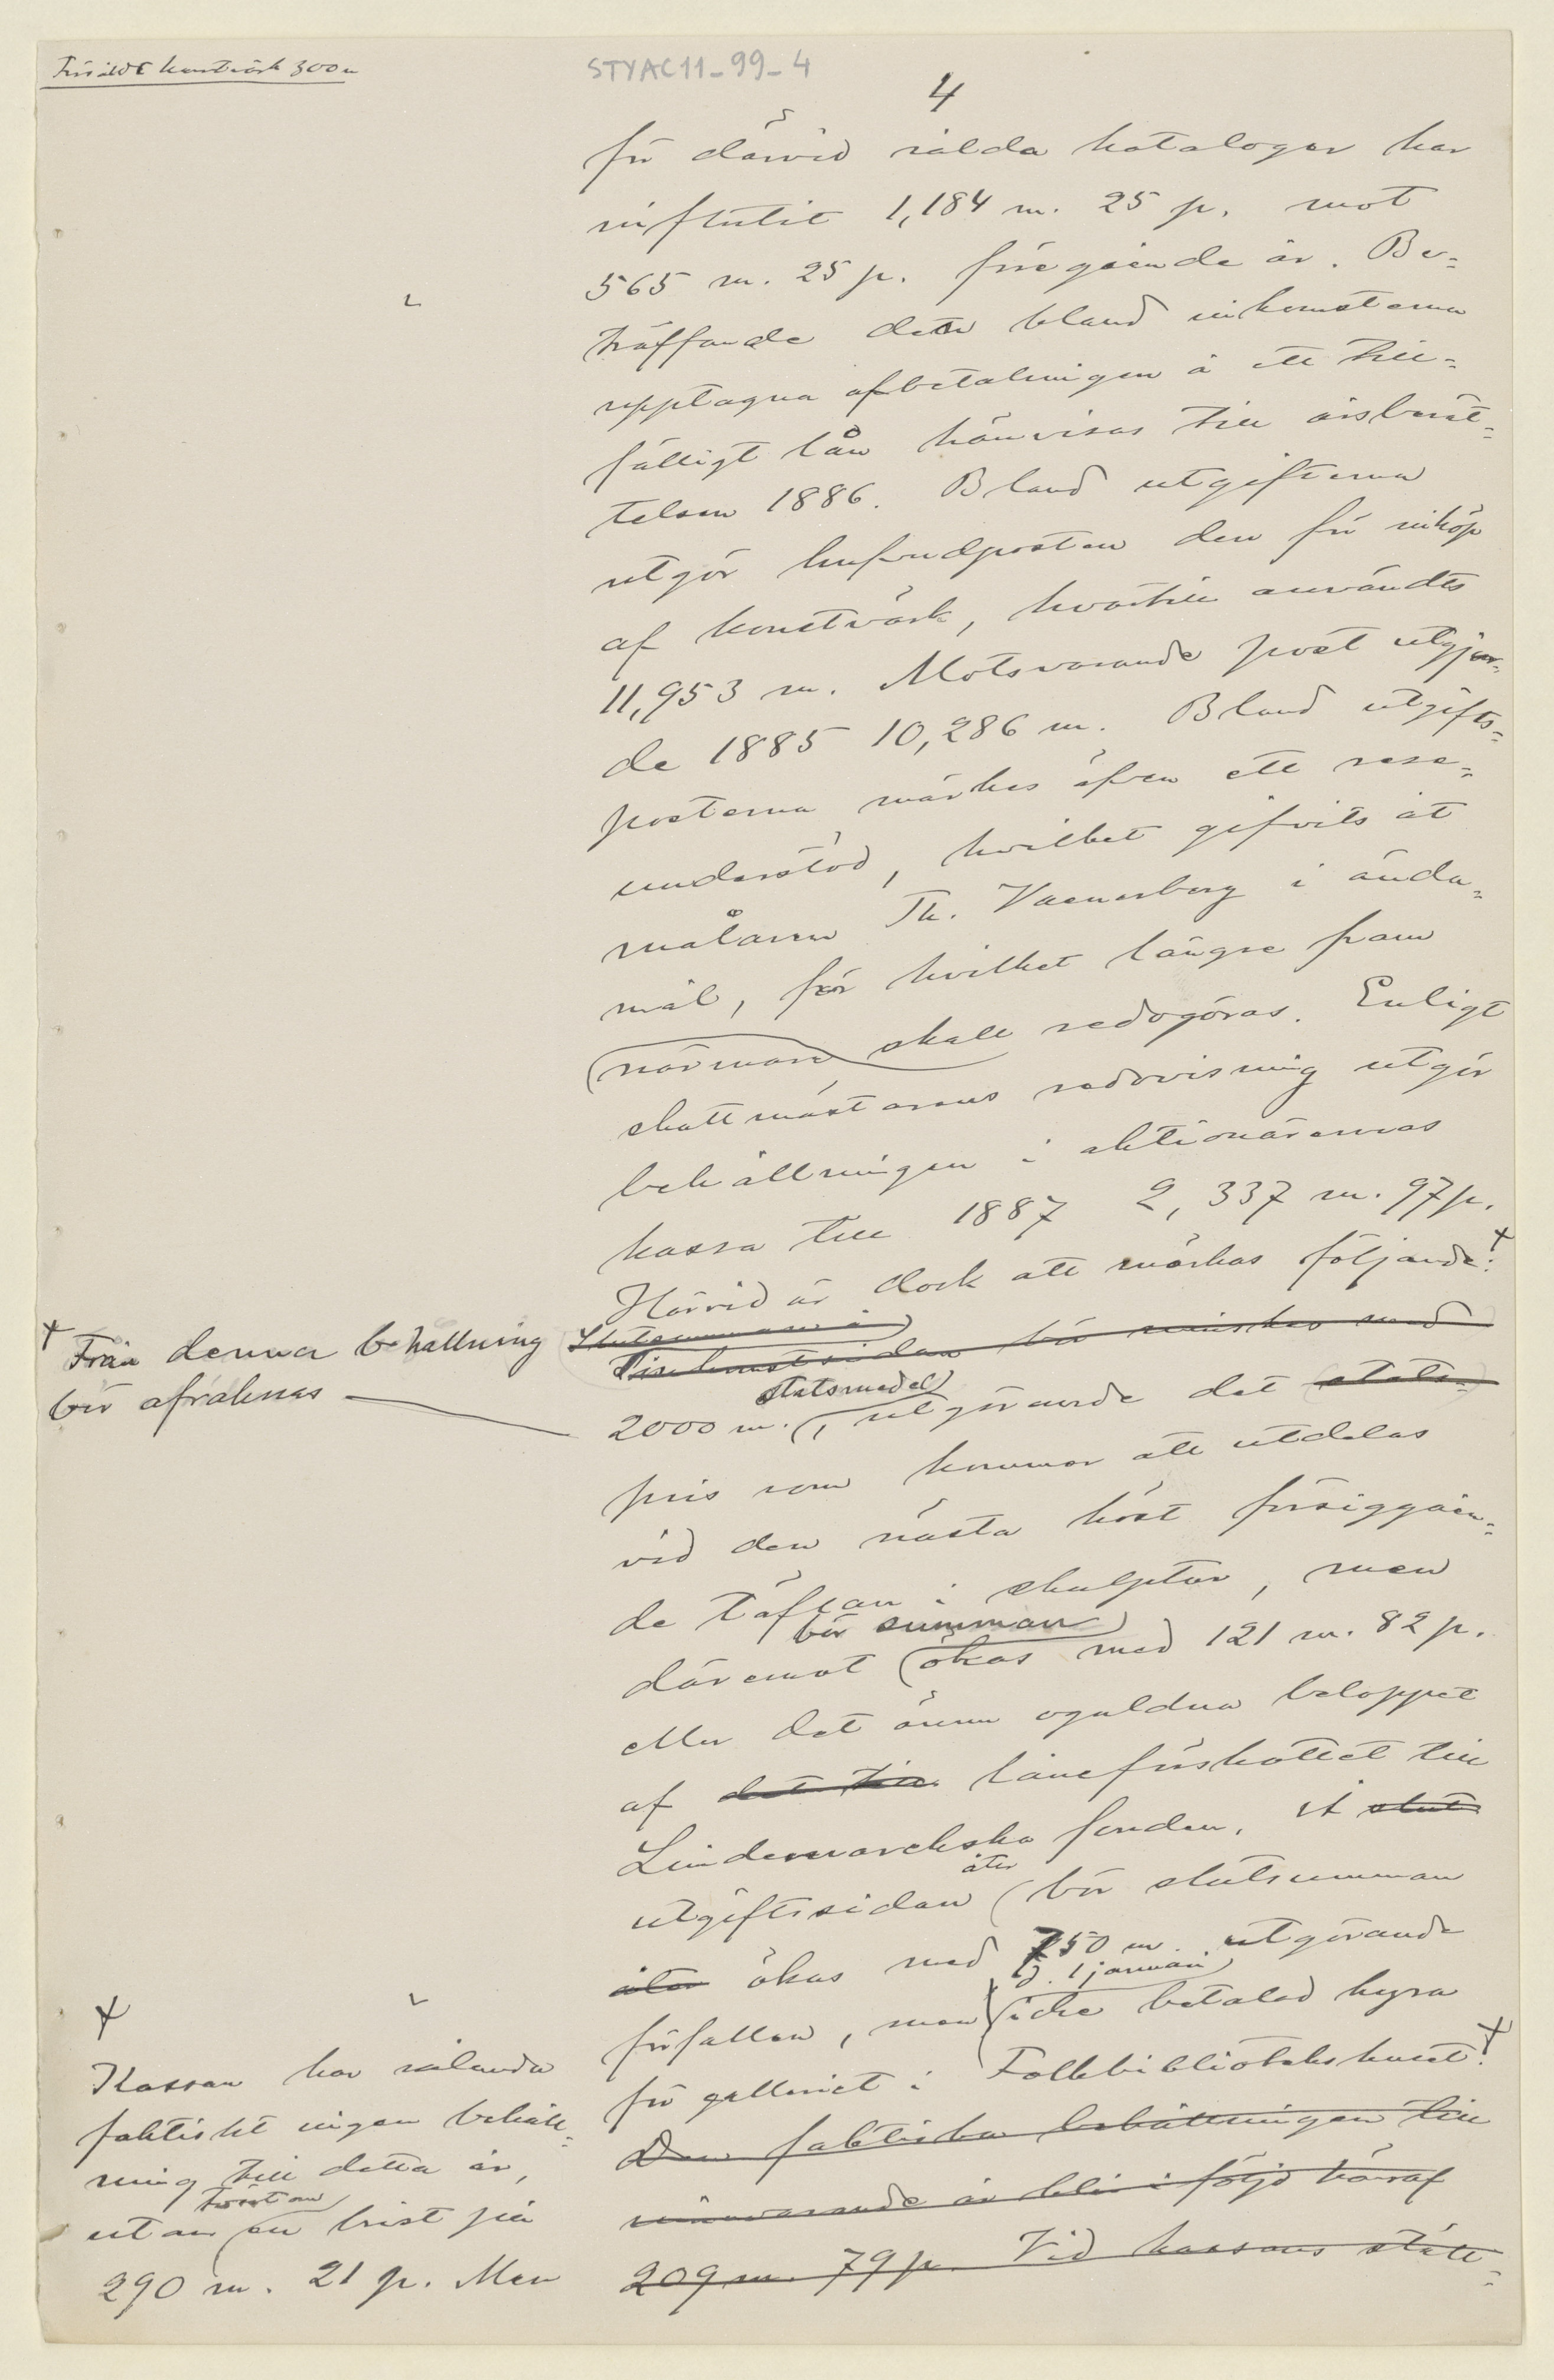 Försåldt konstvärk 300 m
STYAC11_99_4
4
för därvid sålda kataloger har
influtit 1,184 m. 25 p. mot
565 m. 25 p. föregående år. Be-
träffande den bland inkomsterna
upptagna afbetalningen å ett till-
fälligt lån hänvisas till årsberät-
telsen 1886. Bland utgifterna
utgör hufvudposten den för inköp
af konstvärk, hvartill användts
11,953 m. Motsvarande post utgjor-
de 1885 10,286 m. Bland utgifts-
posterna märkes äfven ett rese-
understöd, hvilket gifvits åt
målaren Th. Waenerberg i ända-
mål, för hvilket längre fram
närmare skall redogöras. Enligt
skattmästarens redovisning utgör
behållningen i aktionärernas
kassa till 1887 2,337 m. 97 p.
Härvid är dock att märkas följande: +
+ Från denna behållning
bör afräknas
Slutsumman å
inkomstsidan bör minskas med
statsmedel
2000 m., utgörande det stats-
pris som kommer att utdelas
vid den nästa höst försiggåen-
de täflan i skulptur, men
bör summan
däremot ökas med 121 m. 82 p.
eller det ännu oguldna beloppet
af det till låneförskottet till
Lindemarckska fonden. Å slut
åter
utgiftssidan bör slutsumman
åter ökas med 750 m. utgörande
d. 1 januari
förfallen, men icke betalad hyra
för galleriet i Folkbibliotekshuset. +
Den faktiska behållningen till
innevarande år blir i följd häraf
209 m. 79 p. Vid kassans ställ-
+
Kassan har sålunda
faktiskt ingen behåll-
ning till detta år,
tvärtom
utan en brist på
290 m. 21 p. Men